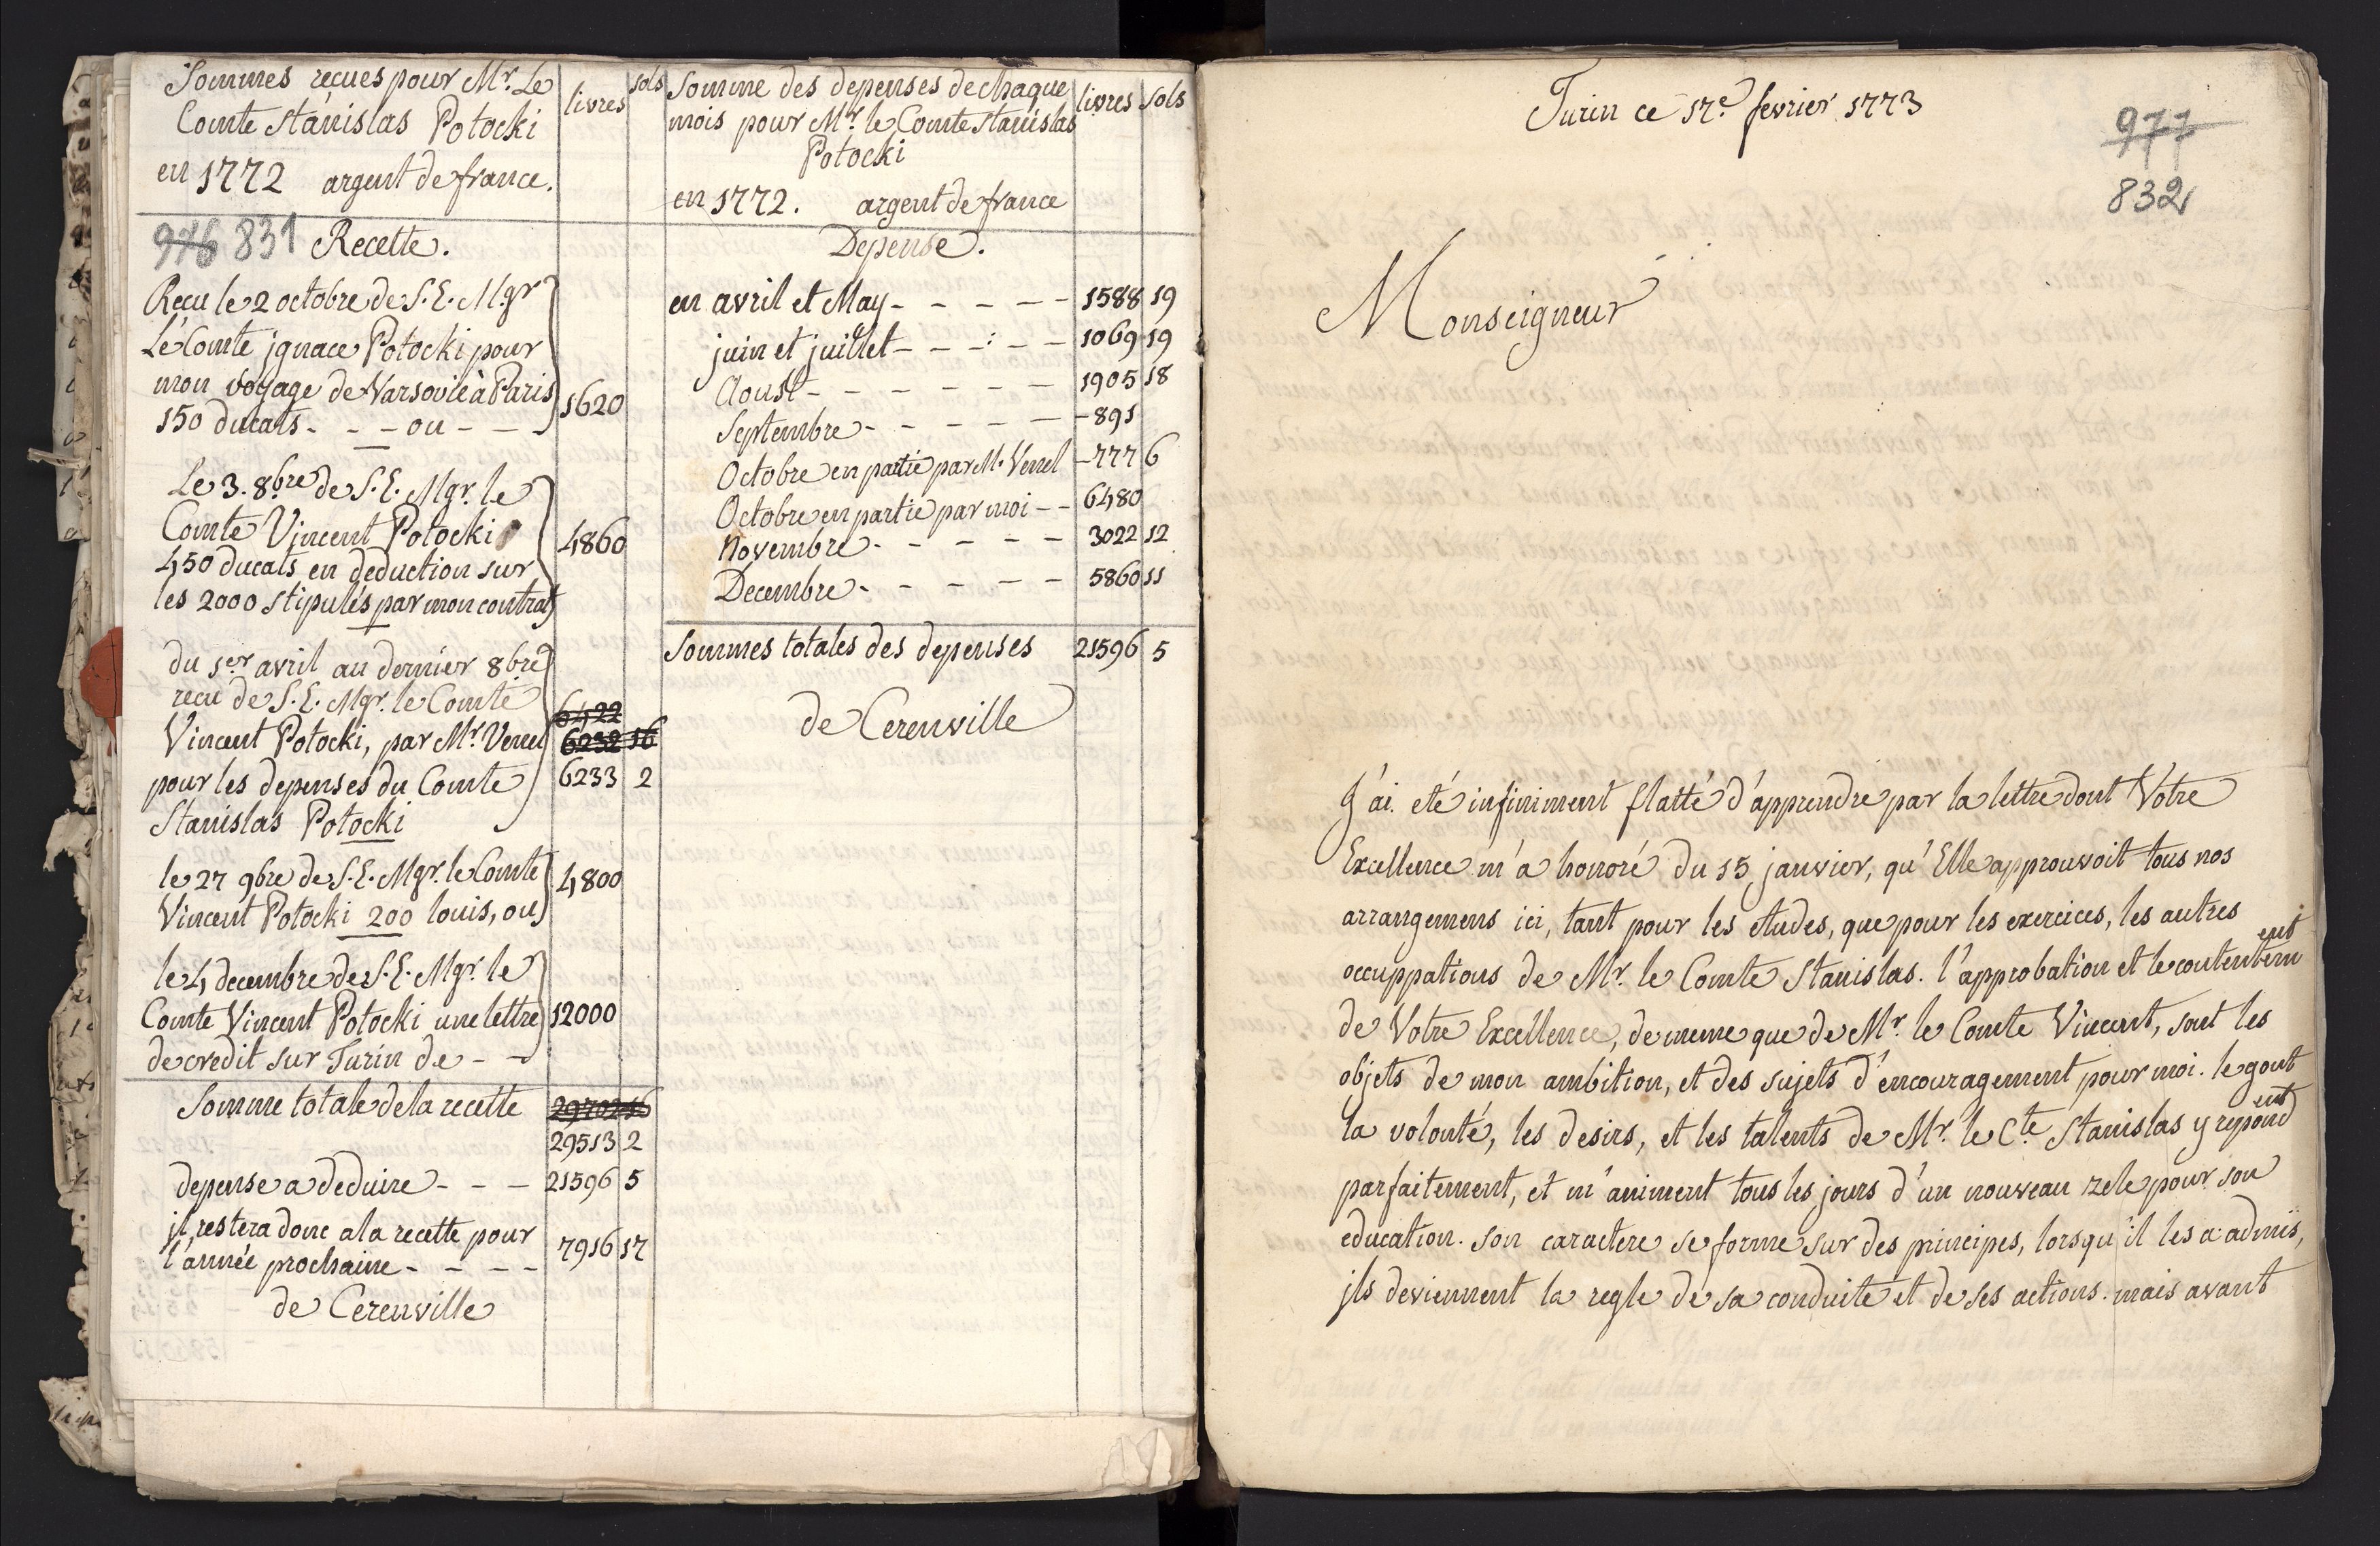 Sommes recues pour Mr. Le
Comte Stanislas Potocki
en 1772 argent de france.
livres
sols
976 831 Recette.
Recu le 2 octobre de S. E. Mgr
Le Comte jgnace Potocki pour
mon voyage de Varsovie à Paris
150 ducats - - - ou - - - 1620
Le 3. 8bre de S. E. Mgr. le
Comte Vincent Potocki
450 ducats en deduction sur 4860
les 2000 stipulés par mon contrat
du 1er avril au dernier 8bre
recu de S. E. Mgr. le Comte
6422
Vincent Potocki, par Mr. Verrel 6232 16
pour les depenses du Comte 6233 2
Stanislas Potocki
le 27 9bre de S. E. Mgr. le Comte 4800
Vincent Potocki 200 louis, ou
le 4 decembre de S. E. Mgr. le
Comte Vincent Potocki une lettre 12000
de credit sur Turin de - -
Somme totale de la recette 29702 16
29513 2
depense a deduire - - - 21596 5
jl restera donc a la recette pour
l'année prochaine - - - - 7916 17
de Cerenville
Somme des depenses de chaque
mois pour Mr. le Comte Stanislas
Potocki
en 1772. argent de france
livres sols
Depense.
en avril et May - - - - - 1588 19
juin et juillet - - - - - 1069 19
Aoust - - - - - - 1905 18
Septembre - - - - - - 891
Octobre en partie par M. Verrel - 777 6
Octobre en partie par moi - - 6480
Novembre - - - - - 3022 12
Decembre - - - - - 5860 11
Sommes totales des depenses 21596 5
de Cerenville
Turin ce 17e. fevrier 1773
977
832
Monseigneur
J'ai eté infiniment flatté d'apprendre par la lettre dont Votre
Excellence m'a honoré du 15 janvier, qu'Elle approuvoit tous nos
arrangemens ici, tant pour les etudes, que pour les exercices, les autres
occuppations de Mr. le Comte Stanislas. l'approbation et le contentement
de Votre Excellence, de meme que de Mr. le Comte Vincent, sont les
objets de mon ambition, et des sujets d'encouragement pour moi. le gout
la volonté, les desirs, et les talents de Mr. le Cte Stanislas y repondent
parfaitement, et m'animent tous les jours d'un nouveau zele pour son
education. son caractere se forme sur des principes, lorsqu'il les a admis,
jls deviennent la regle de sa conduite et de ses actions. mais avant